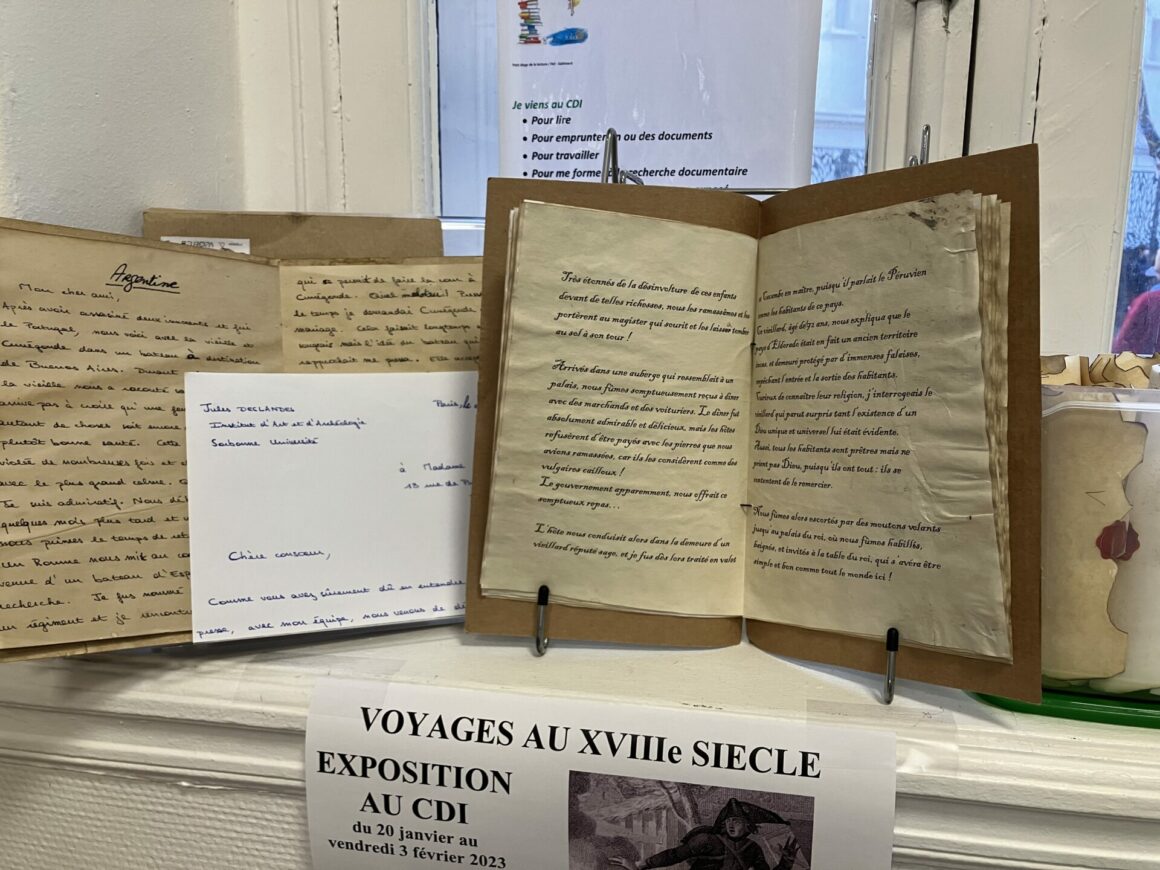 Je viens au CDI
Pour lire
Pour emprunter ou des documents
Pour travailler
Pour me forme recherche documentaire
EUROPA
Argentine
Mon cher ami,
Après avoir assassiné deux innocents et fui
le Portugal, nous voici avec la vieille et
Cunégonde dans un bateau à destination
de Buenos Aires. Durant
la vieille nous a raconté
arrive pas à croire qu'une
autant de choses soit encore
plutôt bonne santé. Cette
violée de nombreuses fois et
avec le plus grand calme.
Je suis admiratif. Nous
quelques mois plus tard et
nous prîmes le temps de
un homme nous mit au
venue d'un bateau d'Esp
recherche. Je fus nommé
un régiment et je rencontr
qui se permit de faire la cour à
Cunégonde. Quel
le temps je demandai Cunégonde
mariage. Cela faisait longtemps
mais l'idée du bateau qui
rapprochait me
Jules DECLANDES
Institut d'Art et d'Archéologie
Sorbonne Université
Paris, le
à Madame
13 rue de
Chère consoeur,
Comme vous avez sûrement dû en entendre
presse, avec mon équipe, nous venons de
Très étonnés de la désinvolture de ces enfants
devant de telles richesses, nous les ramassâmes et les
portèrent au magister qui sourit et les laissa tomber
au sol à son tour !
Arrivés dans une auberge qui ressemblait à un
palais, nous fûmes somptueusement reçus à dîner
avec des marchands et des voituriers. Le dîner fut
absolument admirable et délicieux, mais les hôtes
refusèrent d'être payés avec les pierres que nous
avions ramassées, car ils les considèrent comme des
vulgaires cailloux !
Le gouvernement apparemment, nous offrait ce
somptueux repas...
L'hôte nous conduisit alors dans la demeure d'un
vieillard réputé sage, et je fus dès lors traité en valet
Cacambo en maître, puisqu'il parlait le Péruvien
comme les habitants de ce pays.
Ce vieillard, âgé de 172 ans, nous expliqua que le
pays d'Eldorado était en fait un ancien territoire
incas, et demeuré protégé par d'immenses falaises,
empêchant l'entrée et la sortie des habitants.
Curieux de connaître leur religion, j'interrogeais le
vieillard qui parut surpris tant l'existence d'un
Dieu unique et universel lui était évidente.
Aussi, tous les habitants sont prêtres mais ne
prient pas Dieu, puisqu'ils ont tout : ils se
contentent de le remercier.
Nous fûmes alors escortés par des moutons volants
jusqu'au palais du roi, où nous fûmes habillés,
baignés, et invités à la table du roi, qui s'avéra être
simple et bon comme tout le monde ici !
VOYAGES AU XVIIIe SIECLE
EXPOSITION
AU CDI
du 20 janvier au
vendredi 3 février 2023